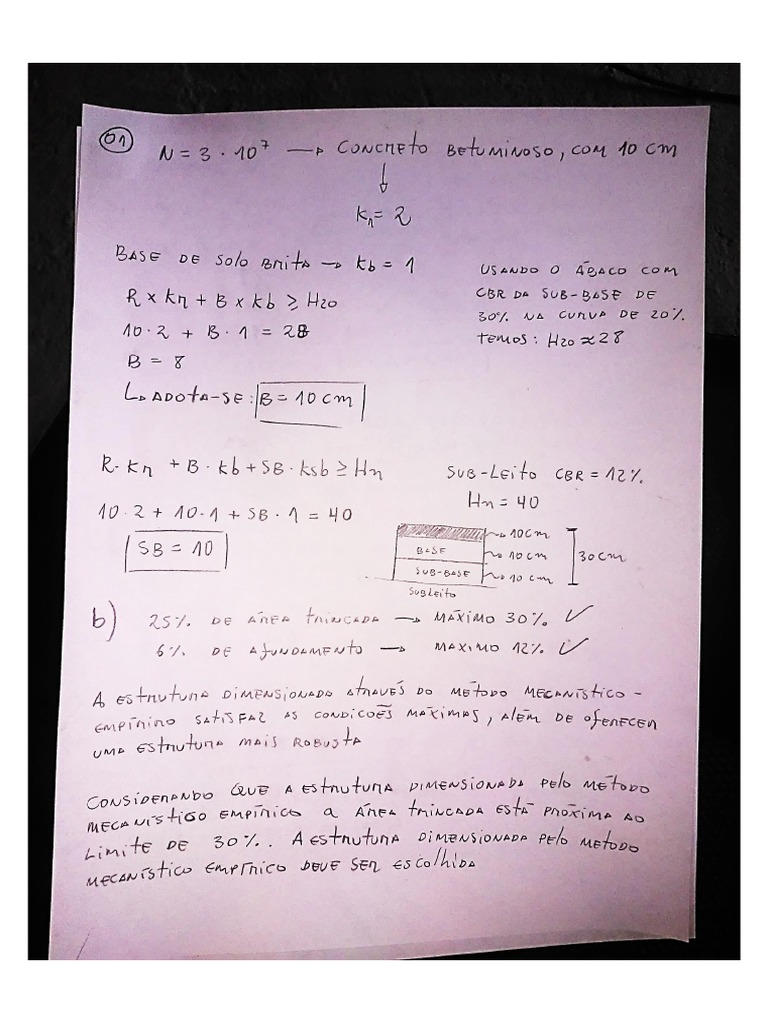 01
N = 3 · 10⁷ → CONCRETO BETUMINOSO, COM 10 CM
↓
Kr = 2
BASE DE SOLO BRITA → Kb = 1
R x Kr + B x Kb ≥ H20
10 · 2 + B · 1 = 28
B = 8
↳ ADOTA-SE: B = 10 CM
USANDO O ÁBACO COM
CBR DA SUB-BASE DE
30% NA CURVA DE 20%.
TEMOS: H20 ≈ 28
R · Kr + B · Kb + SB · Ksb ≥ Hn
10 · 2 + 10 · 1 + SB · 1 = 40
SB = 10
SUB-LEITO CBR = 12%.
Hn = 40
→ 10 CM
BASE → 10 CM
SUB-BASE → 10 CM
30 CM
SUBLEITO
b) 25%. DE ÁREA TRINCADA → MÁXIMO 30%. ✓
6%. DE AFUNDAMENTO → MAXIMO 12%. ✓
A ESTRUTURA DIMENSIONADA ATRAVÉS DO MÉTODO MECANÍSTICO -
EMPÍRIRO SATISFAZ AS CONDICOẼS MÁXIMAS, ALÉM DE OFERECER
UMA ESTRUTURA MAIS ROBUSTA
CONSIDERANDO QUE A ESTRUTURA DIMENSIONADA PELO MÉTODO
MECANÍSTIGO EMPÍRICO A ÁREA TRINCADA ESTÁ PRÓXIMA AO
LIMITE DE 30%.. A ESTRUTURA DIMENSIONADA PELO METODO
MECANÍSTICO EMPÍRICO DEVE SER ESCOLHIDA